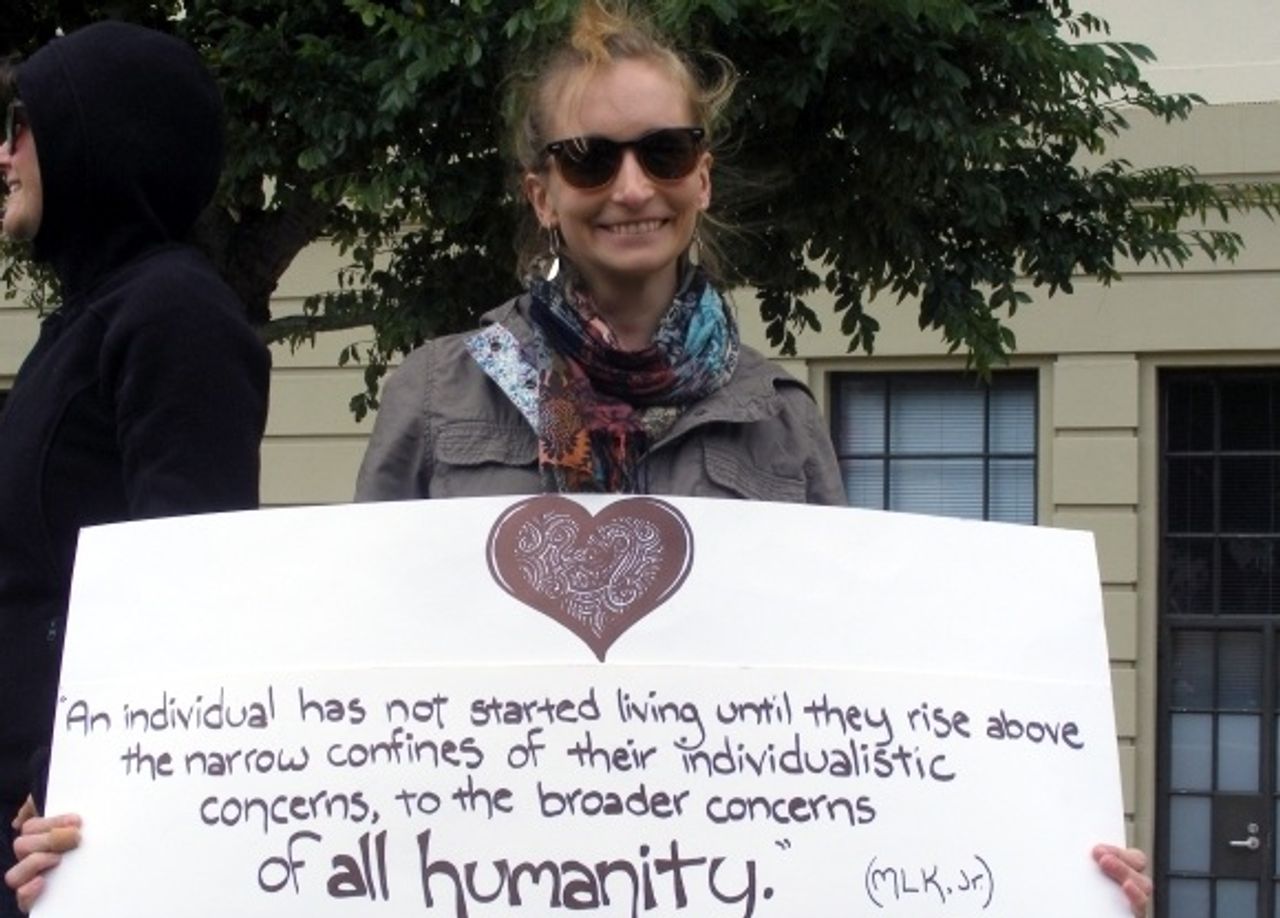 "An individual has not started living until they rise above
the narrow confines of their individualistic
concerns, to the broader concerns
of all humanity."
(MLK, Jr.)